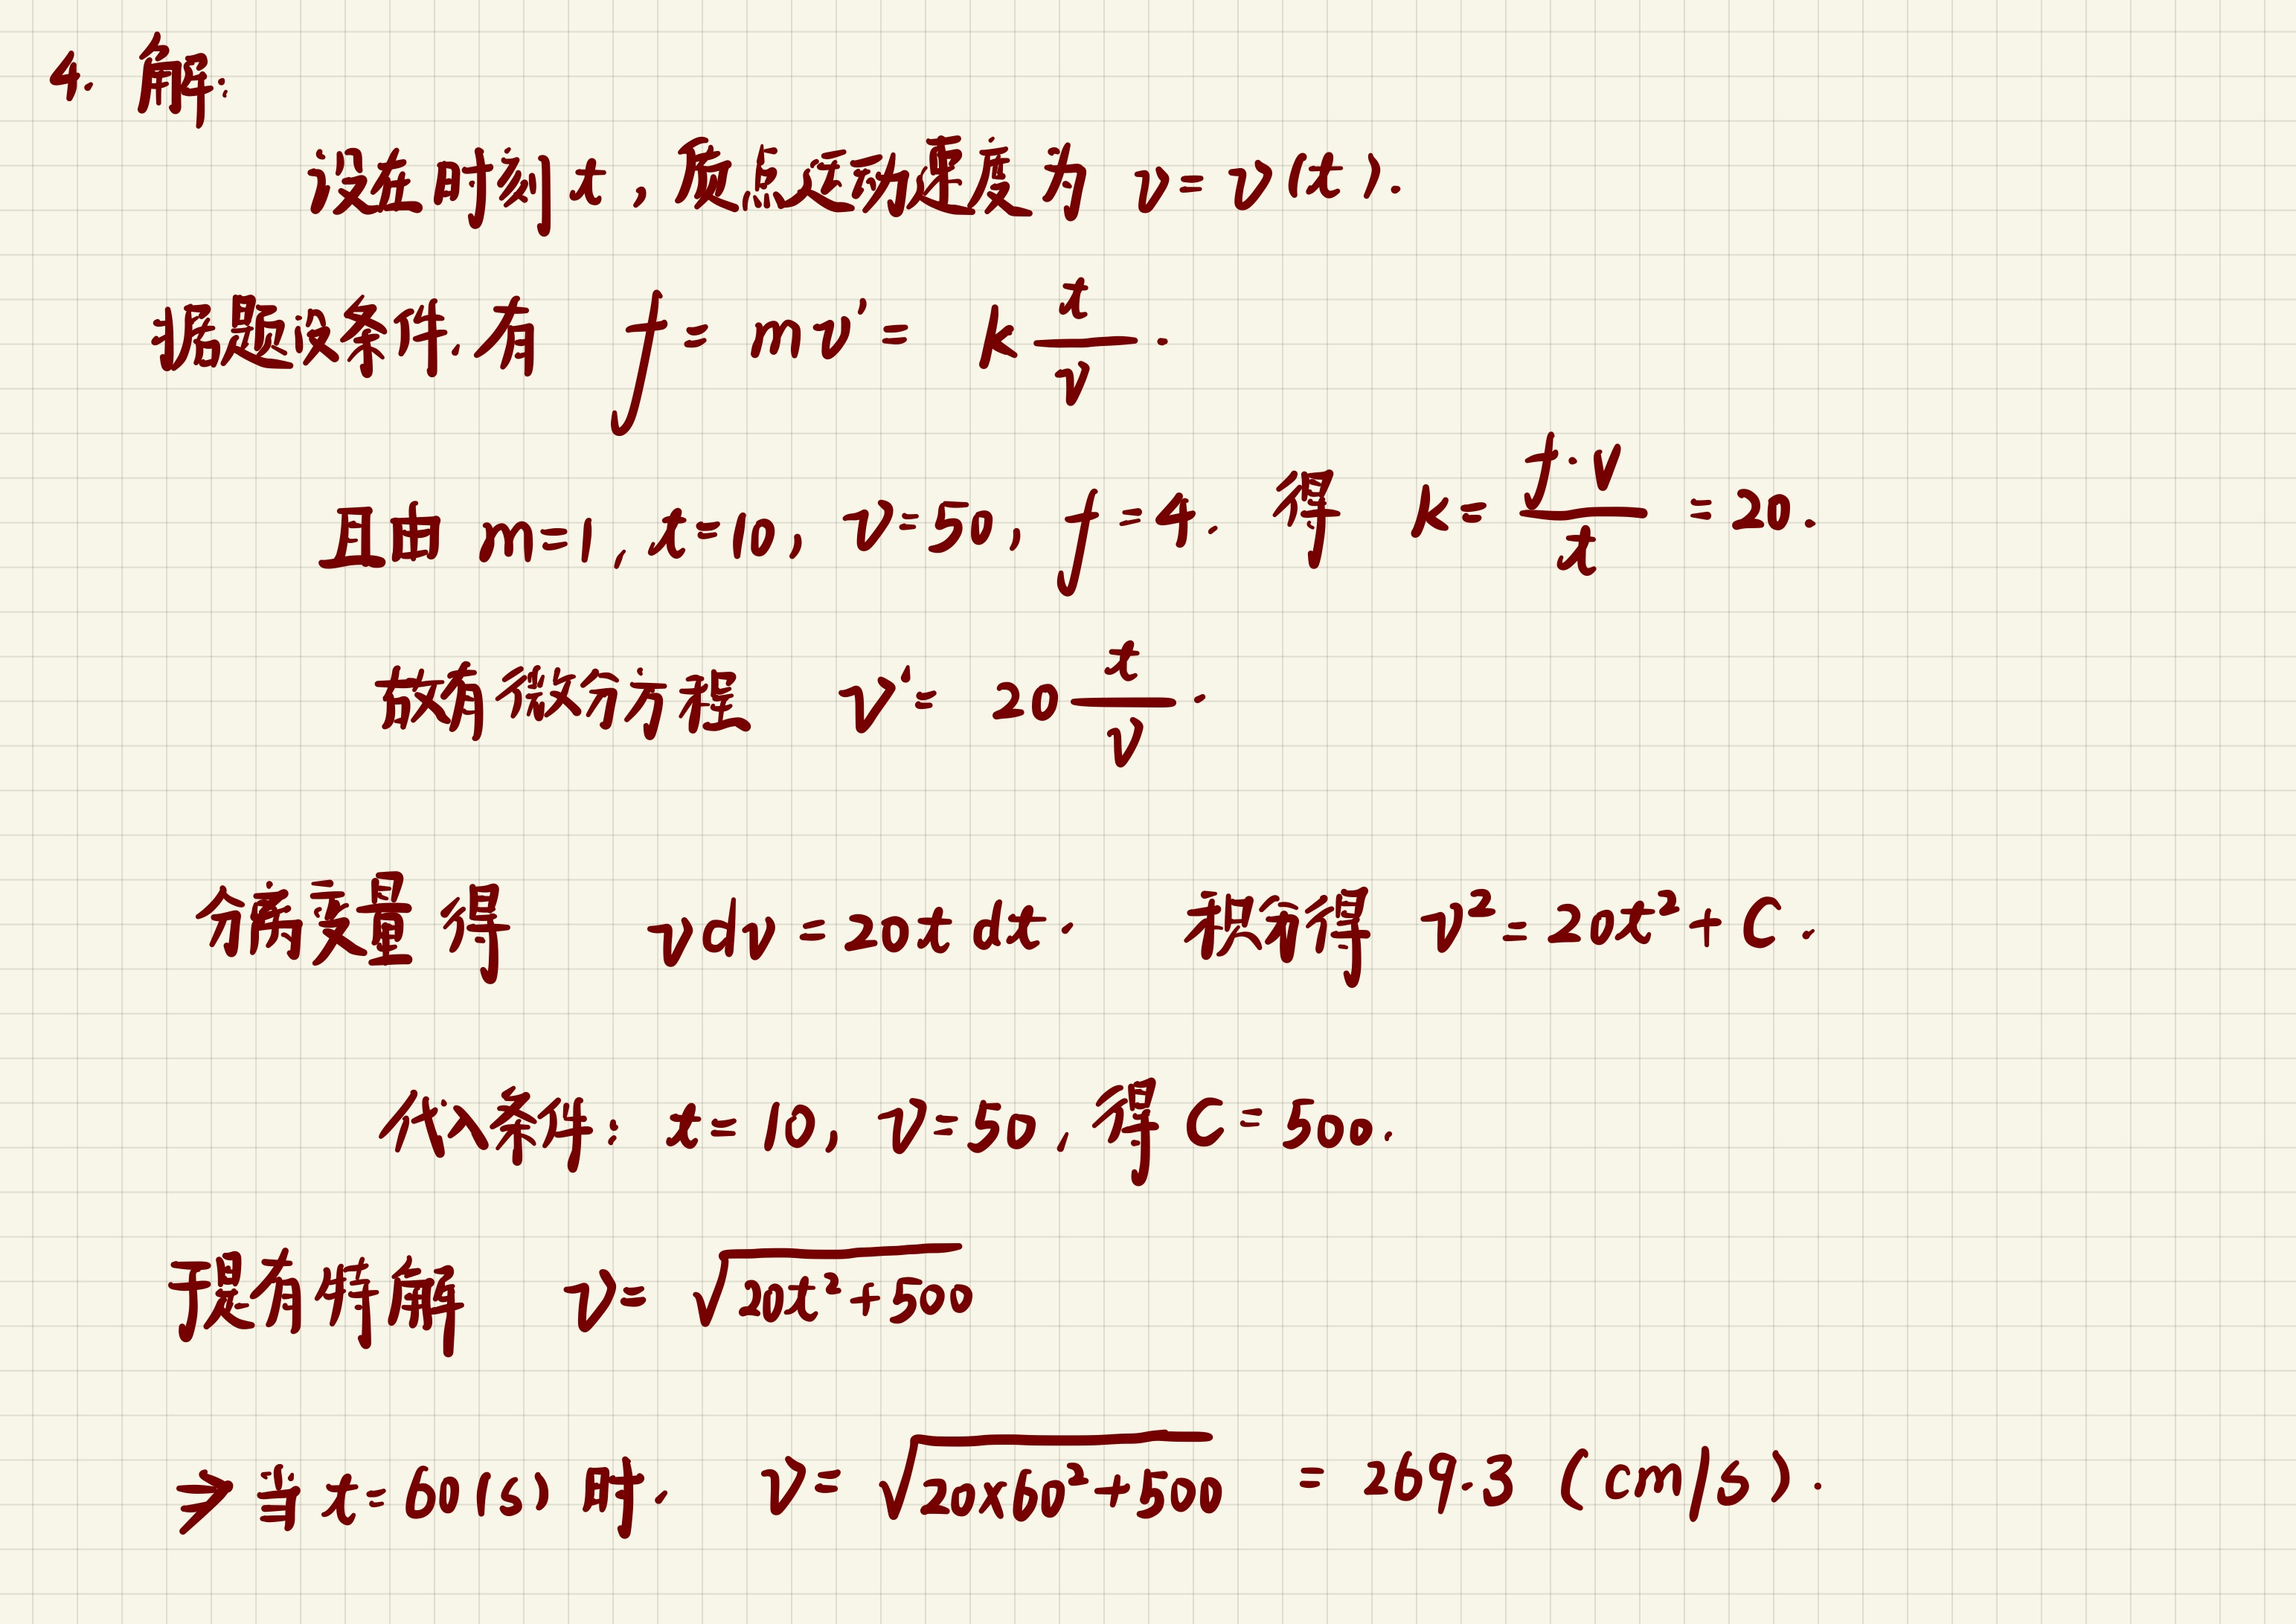 4. 解:
设在时刻t, 质点运动速度为 v=v(t).
据题设条件.有 f=mv'=k t/v.
且由 m=1, t=10, v=50, f=4. 得 k=f·v/t=20.
故有微分方程 v'=20 t/v.
分离变量得 vdv=20tdt. 积分得 v²=20t²+C.
代入条件: t=10, v=50, 得C=500.
于是有特解 v=√(20t²+500)
→当t=60(s)时. v=√(20×60²+500) = 269.3 (cm/s).